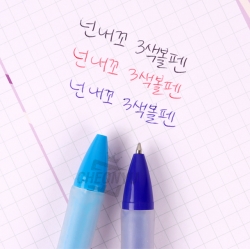 넌 내꼬 3색볼펜
넌 내꼬 3색볼펜
넌 내꼬 3색볼펜